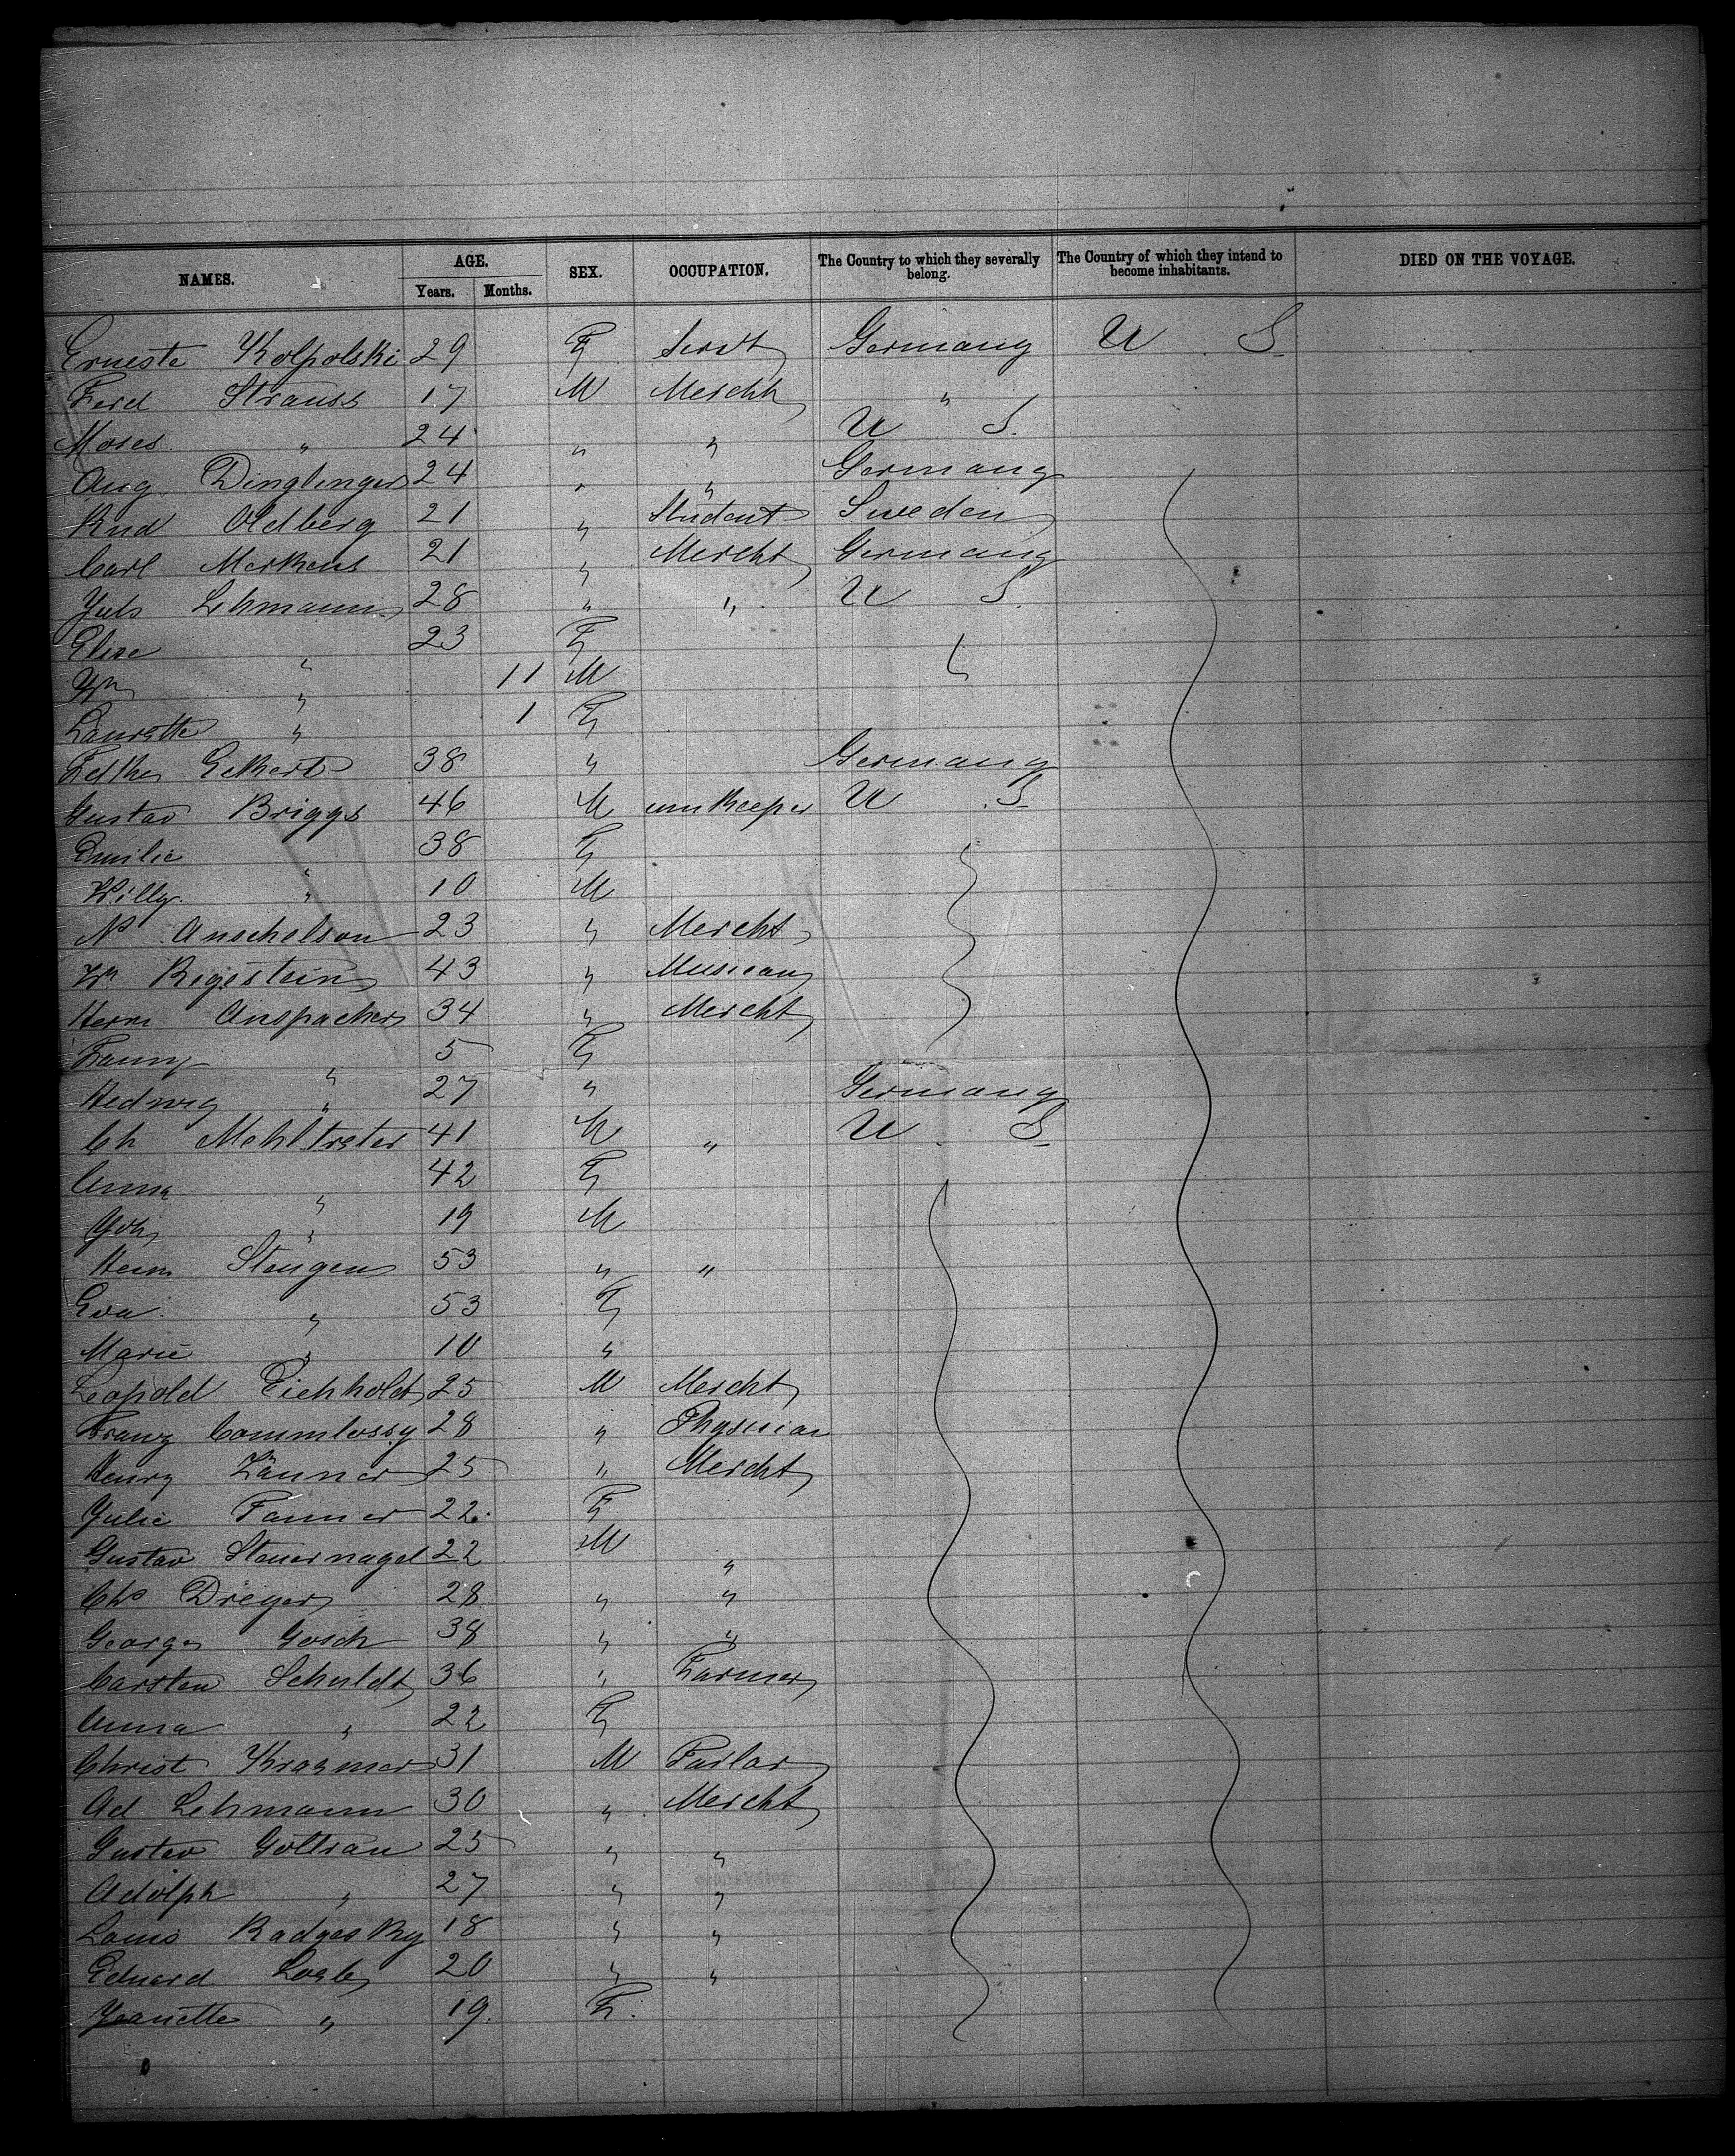 NAMES. AGE. SEX. OCCUPATION. The Country to which they severally belong. The Country of which they intend to become inhabitants. DIED ON THE VOYAGE.
Years. Months.
Erneste Kolpolski 29 F Servt Germany U S
Ferd Strauss 17 M Merchh "
Moses " 24 " " U S.
Aug. Dinglinger 24 " " Germany
Knd Oldberg 21 " Student Sweden
Carl Merkens 21 " Mercht Germany
Juls Lehmann 28 " " U S.
Elise " 23 F
Wm " 11 M
Laurette " 1 F
Eckert 38 " Germany
Gustav Briggs 46 M U S
Emilie " 38 F
Willy " 10 M
N Anschelson 23 " Mercht
Wm Regestein 43 " Musican
Herm Anspacher 34 " Mercht
Fanny " 5 F
Hedwig " 27 " Germany
Ch Mehltreter 41 M " U S
Anna " 42 F
Joh " 19 M
Herm Stengen 53 " "
Eva " 53 F
Marie " 10 "
Leopold Eichholdt 25 M Mercht
Franz Commlossy 28 " Physician
Henry Zänner 25 " Mercht
Julie Fanner 22. F
Gustav Steuernagel 22 M "
Chs Dreyer 28 " "
George Gosch 38 " "
Carsten Schuldt 36 " Farmer
Anna " 22 F
Christ Kraemer 31 M Tailor
Ad Lehmann 30 " Mercht
Gustav Goltran 25 " "
Adolph " 27 " "
Louis Radgesky 18 " "
Eduard Loeb 20 " "
Jeanette " 19. F.